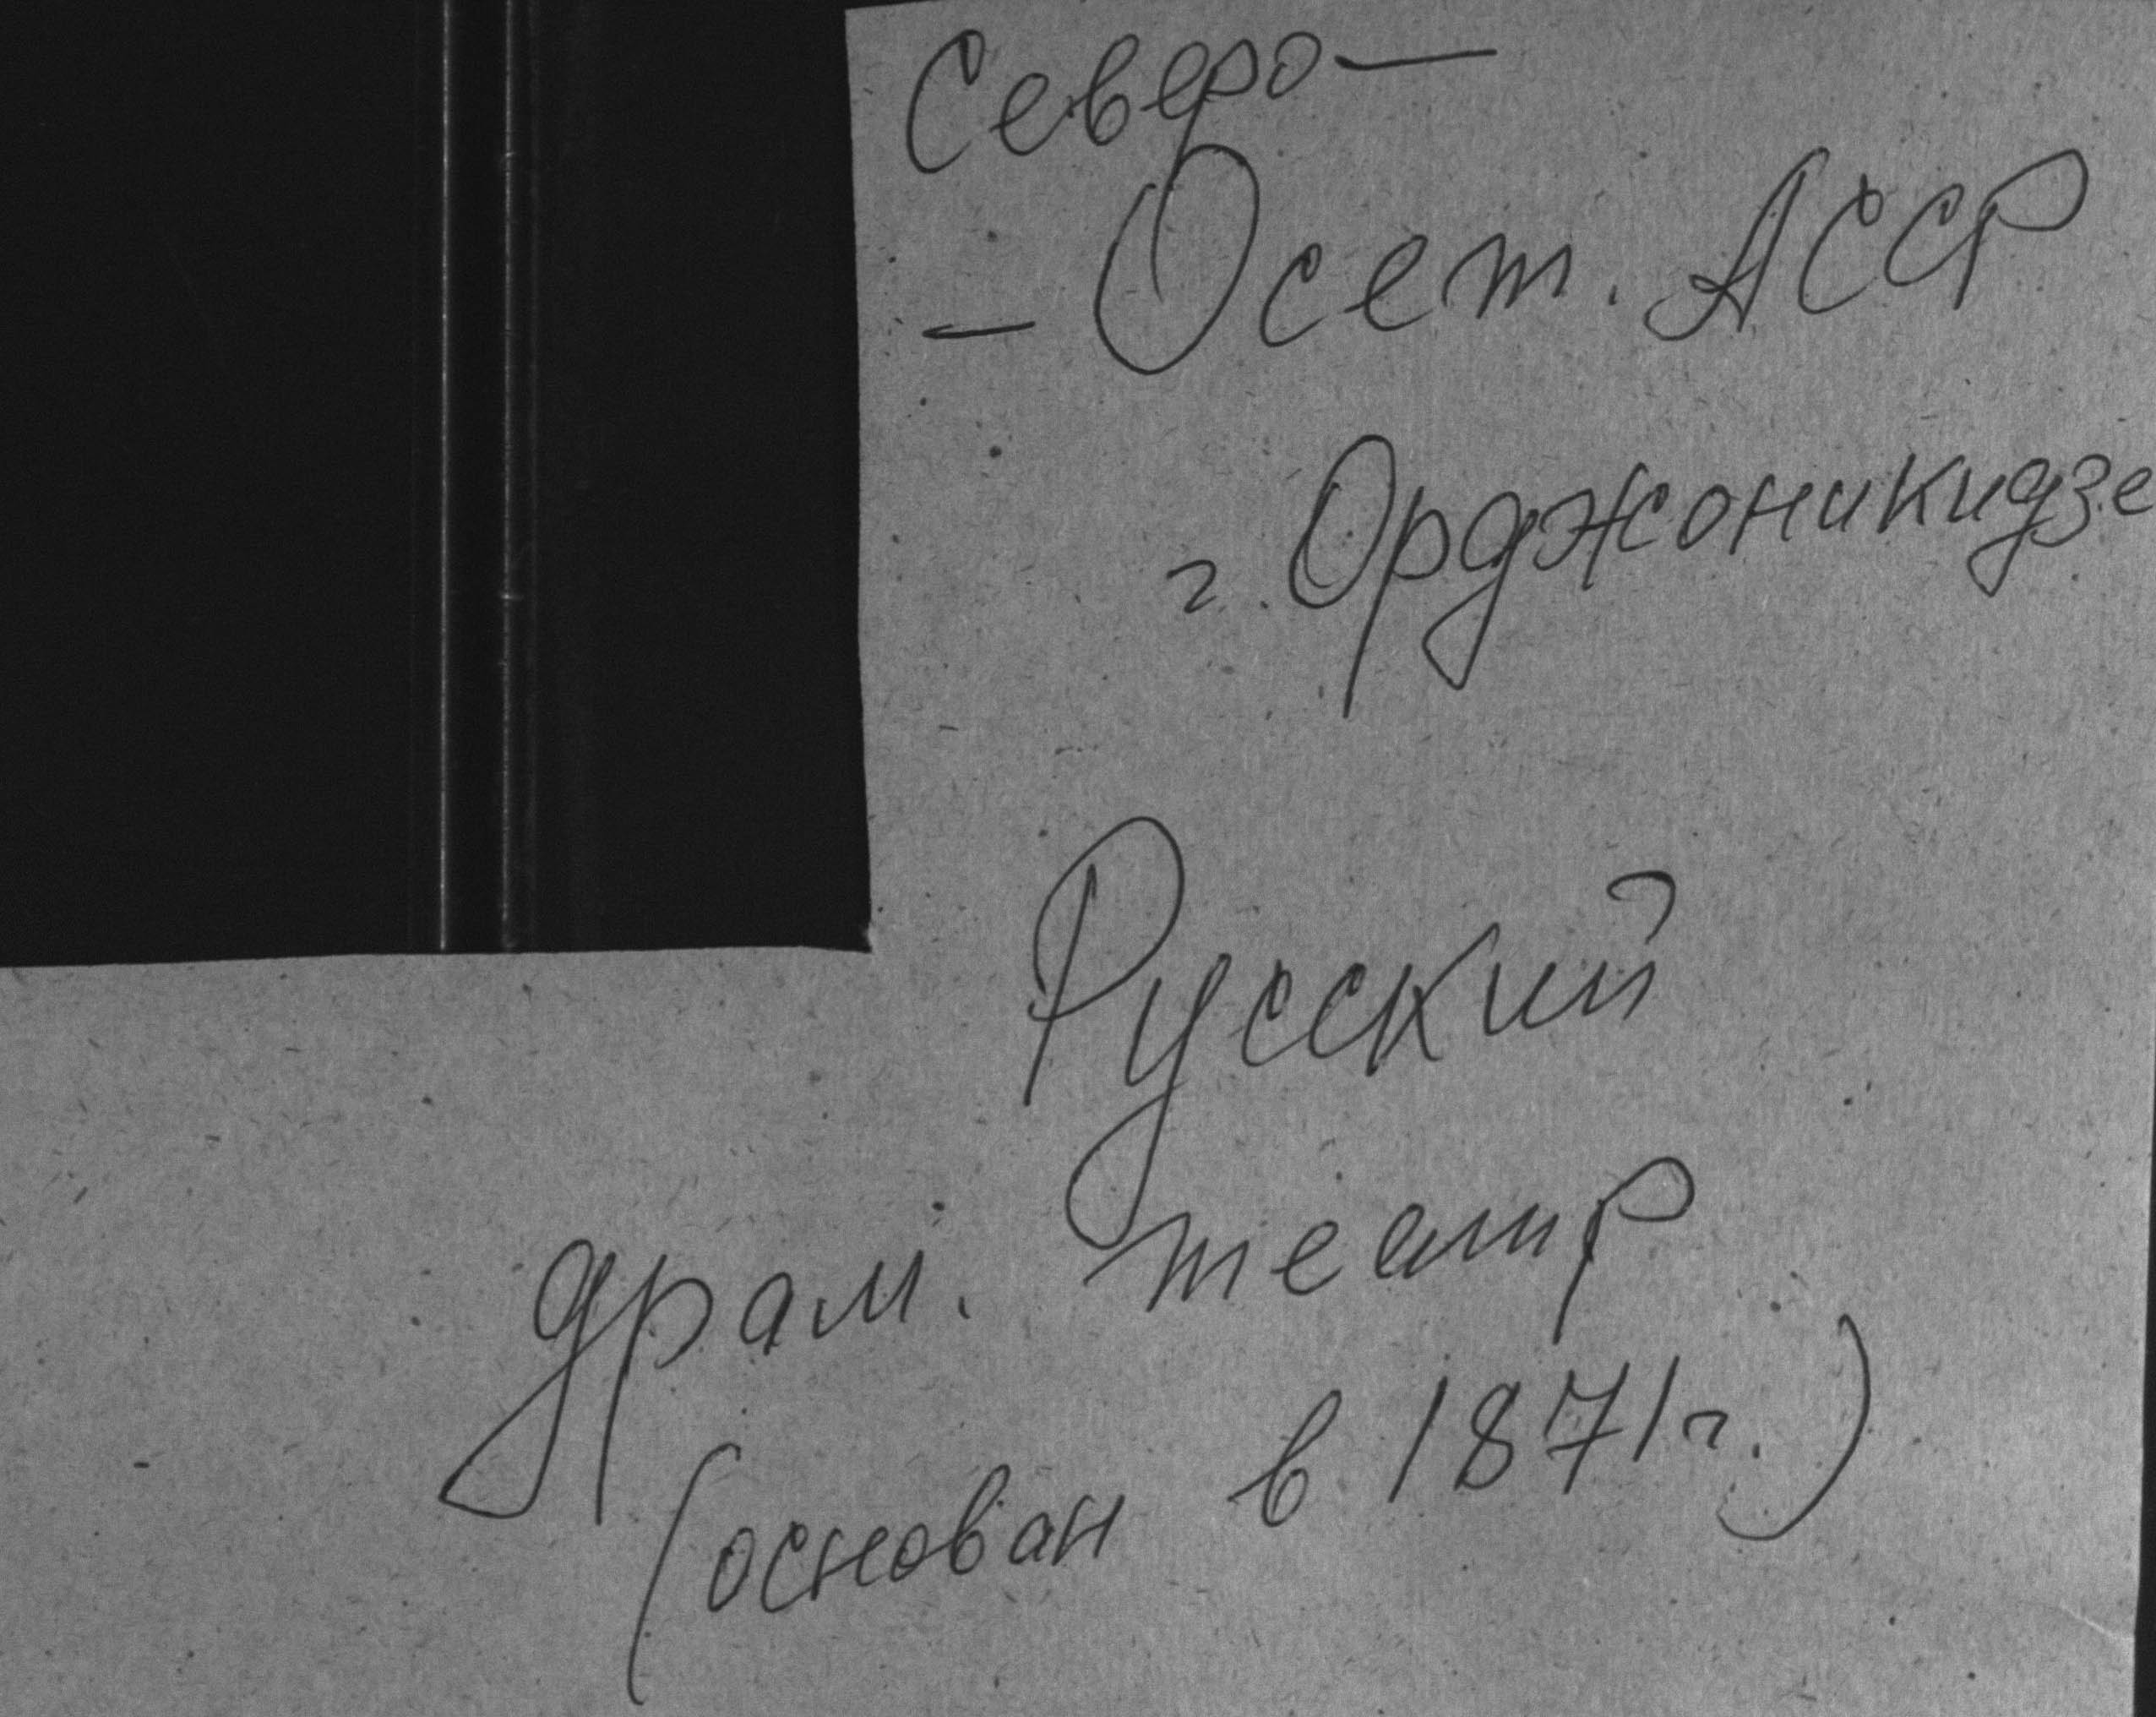 Северо-
- Осет. АССР
г. Орджоникидзе
Русский
драм. театр
(основан в 1871г.)